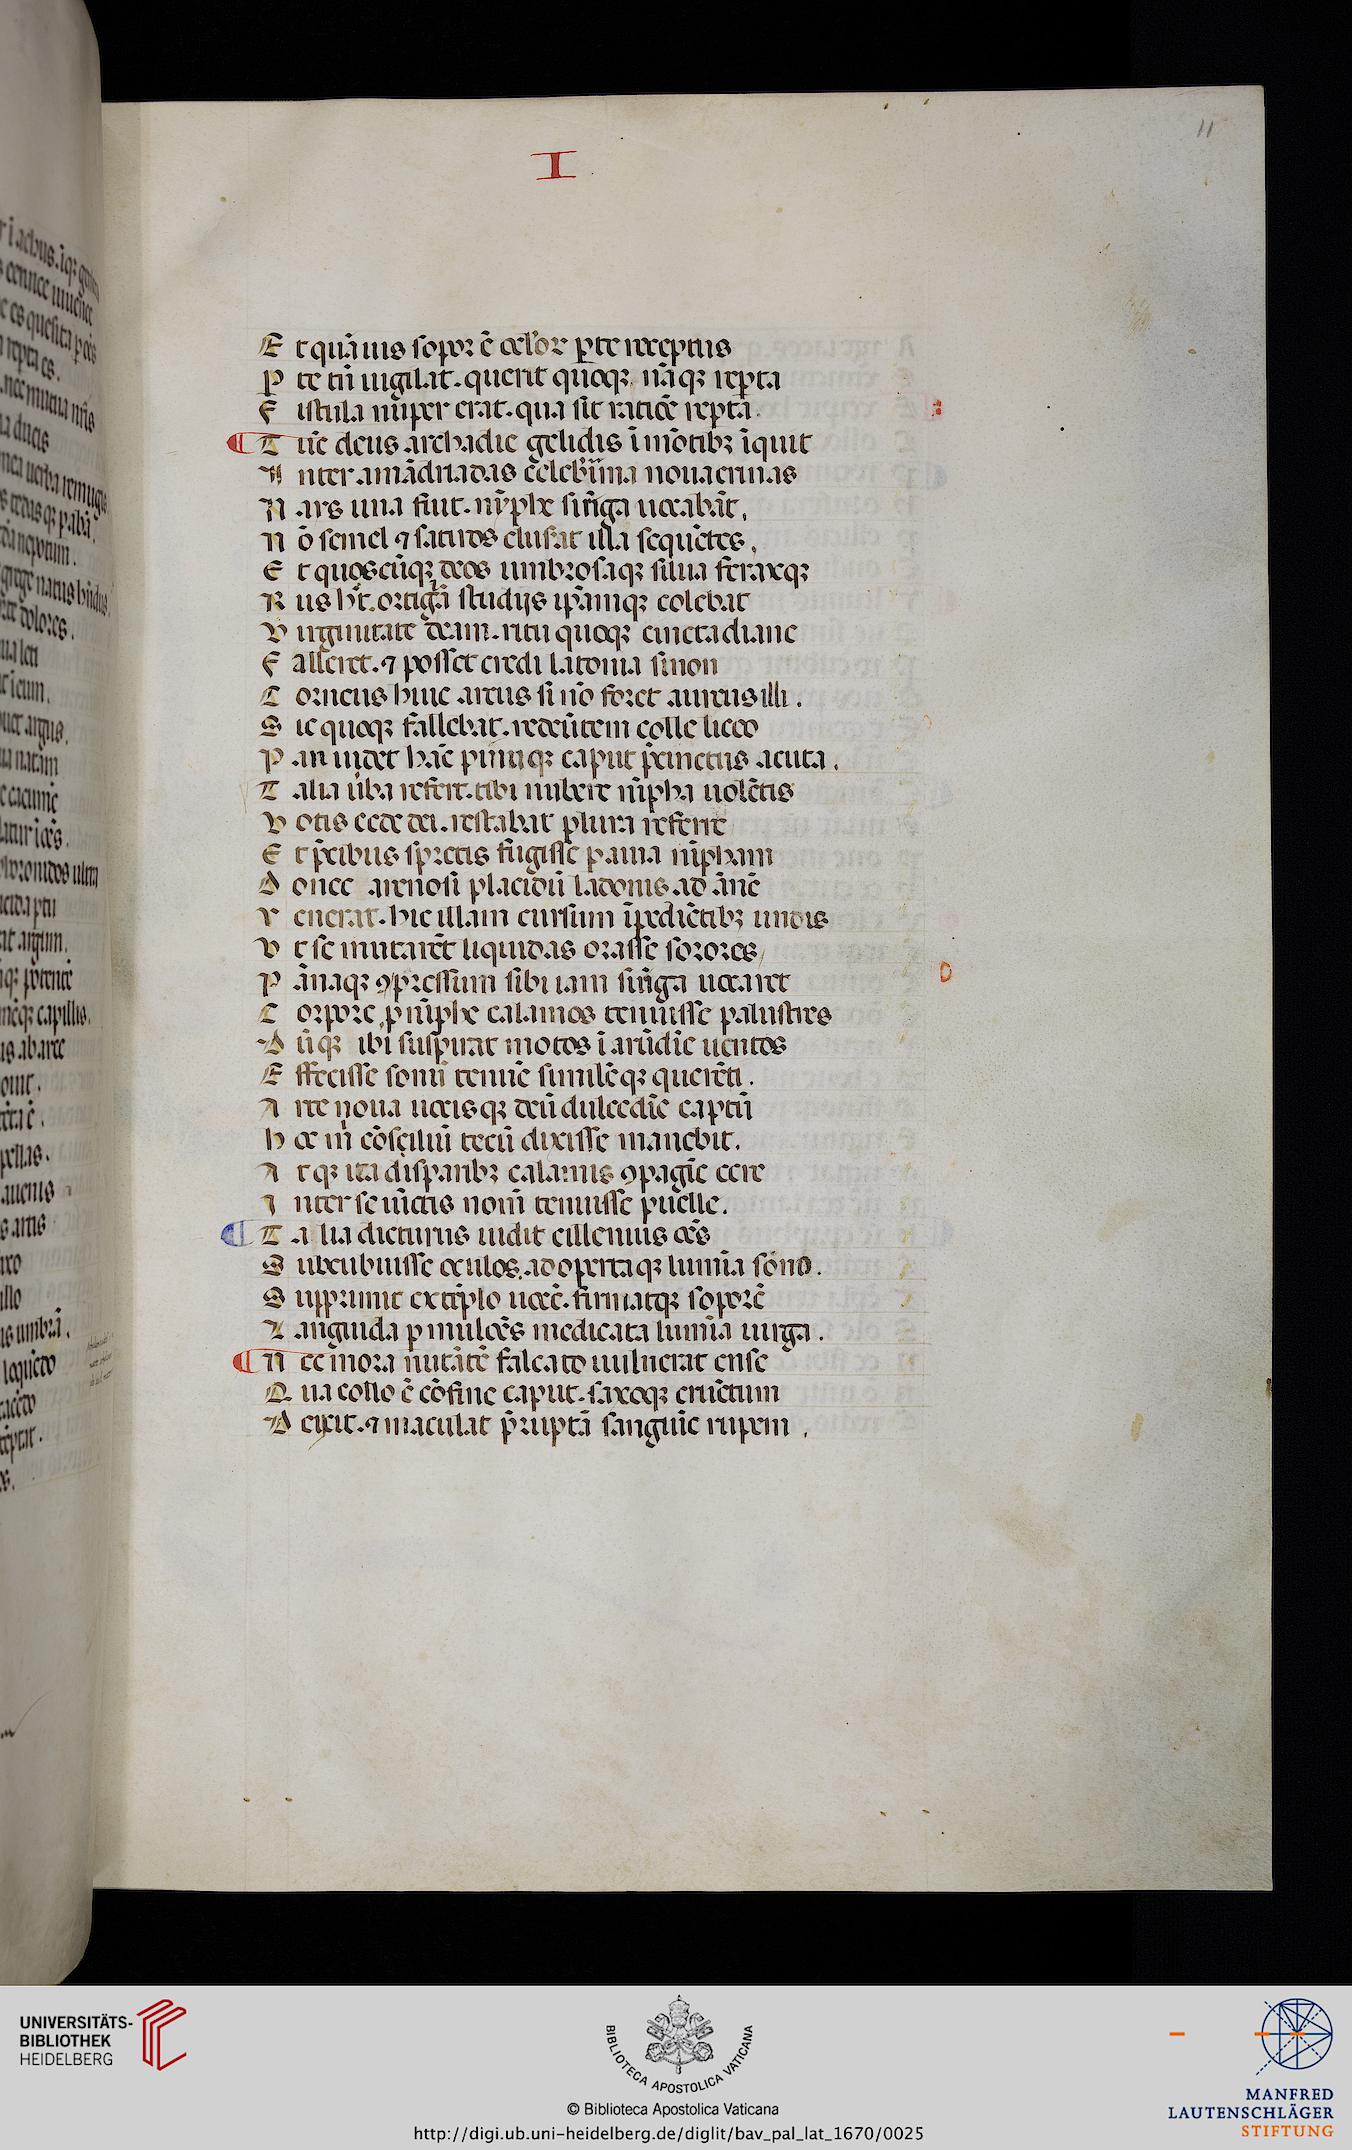 11
I
E t quāuis sopor ē oclōꝝ ꝑte receptus
P te tn̄ uigilat. querit quoqꝫ. nāqꝫ repta
F istula nuper erat. qua sit ratiōe repta.
T ūc deus archadie gelidis ī mōtibꝫ īquit
I nter amādriadas celeberrima nonacrinas
N ays una fuit. nȳphe siringa uocabāt.
N ō semel ⁊ satiros eluserat illa sequētes.
E t quoscūqꝫ deos umbrosaqꝫ silua feraxqꝫ
R us hȝ. ortigiā studijs ipsāmqꝫ colebat
V irginitate deam. ritu quoqꝫ cincta diane
F alleret. ⁊ posset credi latonia si non
C orneus huic arcus si nō foret aureus illi.
S ic quoqꝫ fallebat. redeūtem colle liceo
P an uidet hāc pinuqꝫ caput p̄cinctus acuta.
T alia ūba refert. tibi nubere nīpha uolētis
V otis cede dei. restabat plura referre
E t p̄cibus spretis fugisse ꝑ auia nīpham
D onec arenosi placidū ladonis ad ānē
V enerat. hic illam cursum īpediētibꝫ undis
V t se mutarēt liquidas orasse sorores
P ānaqꝫ ꝯpressam sibi iam siringa uocaret
C orpore ꝓ nīphe calamos tenuisse palustres
D ūqꝫ ibi suspirat motos ī arūdīe uentos
E ffecisse sonū tenuē similēqꝫ querēti.
A rte noua uocisqꝫ deū dulcedīe captū
H oc m̄ cōsciliū tecū dixisse manebit.
A tqꝫ ita disparibꝫ calamis ꝯpagīe cere
I nter se iūctis nom̄ tenuisse puelle.
T alia dicturus uidit cillenius oēs
S ubcubuisse oculos. adopertaqꝫ lumīa sōno.
S upprimit extēplo uocē. firmatqꝫ soporē
L anguida ꝑmulcēs medicata lumīa uirga.
N ec mora nutātē falcato uulnerat ense
Q ua collo ē cōfine caput. saxoqꝫ cruētum
D eicit. ⁊ maculat p̄ruptā sanguīe rupem.
UNIVERSITÄTS-
BIBLIOTHEK
HEIDELBERG
BIBLIOTECA APOSTOLICA VATICANA
© Biblioteca Apostolica Vaticana
http://digi.ub.uni-heidelberg.de/diglit/bav_pal_lat_1670/0025
MANFRED
LAUTENSCHLÄGER
STIFTUNG